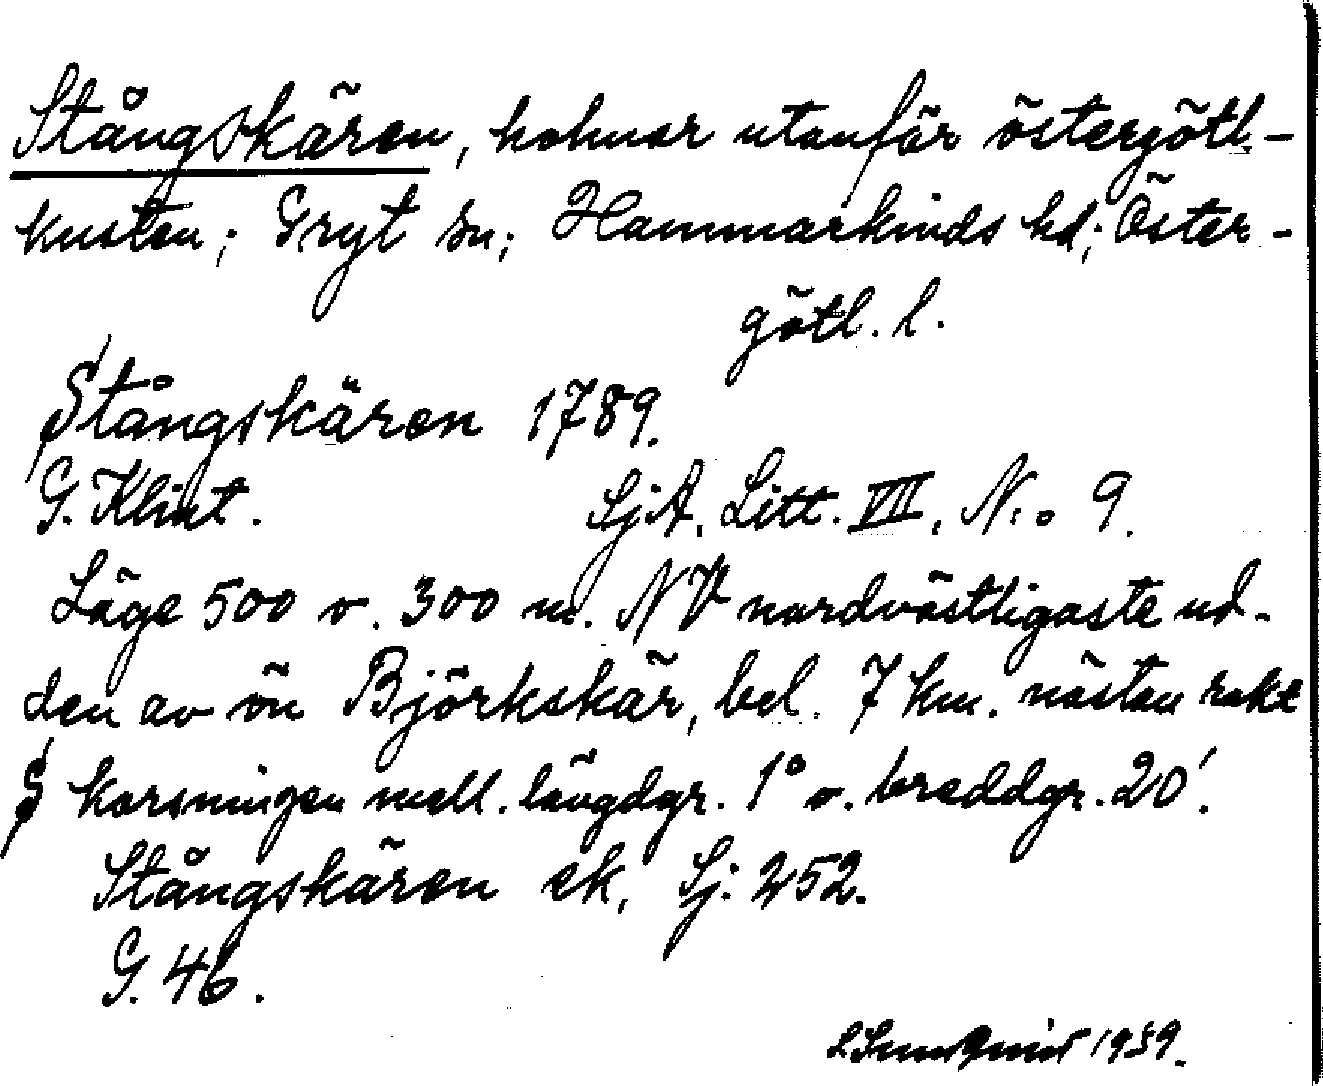 Stångskären, holmar utanför östergötl.-
kusten; Gryt sn; Hammarkinds hd; Öster-
götl. l.
Stångskären 1789.
G. Klint. SjA, Litt. VIII, N:o 9.
Läge 500 o. 300 m. NV nordvästligaste ud-
den av ön Björkskär, bel. 7 km. nästan rakt
S korsningen mell. längdgr. 1° o. breddgr. 20'.
Stångskären ek, Sj: 252.
G. 46.
1939.